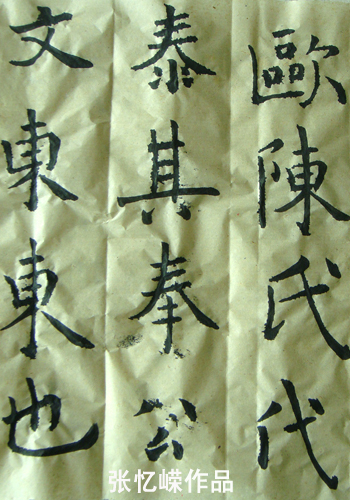 歐陳氏代
泰其奉公
文東東也
张忆嵘作品